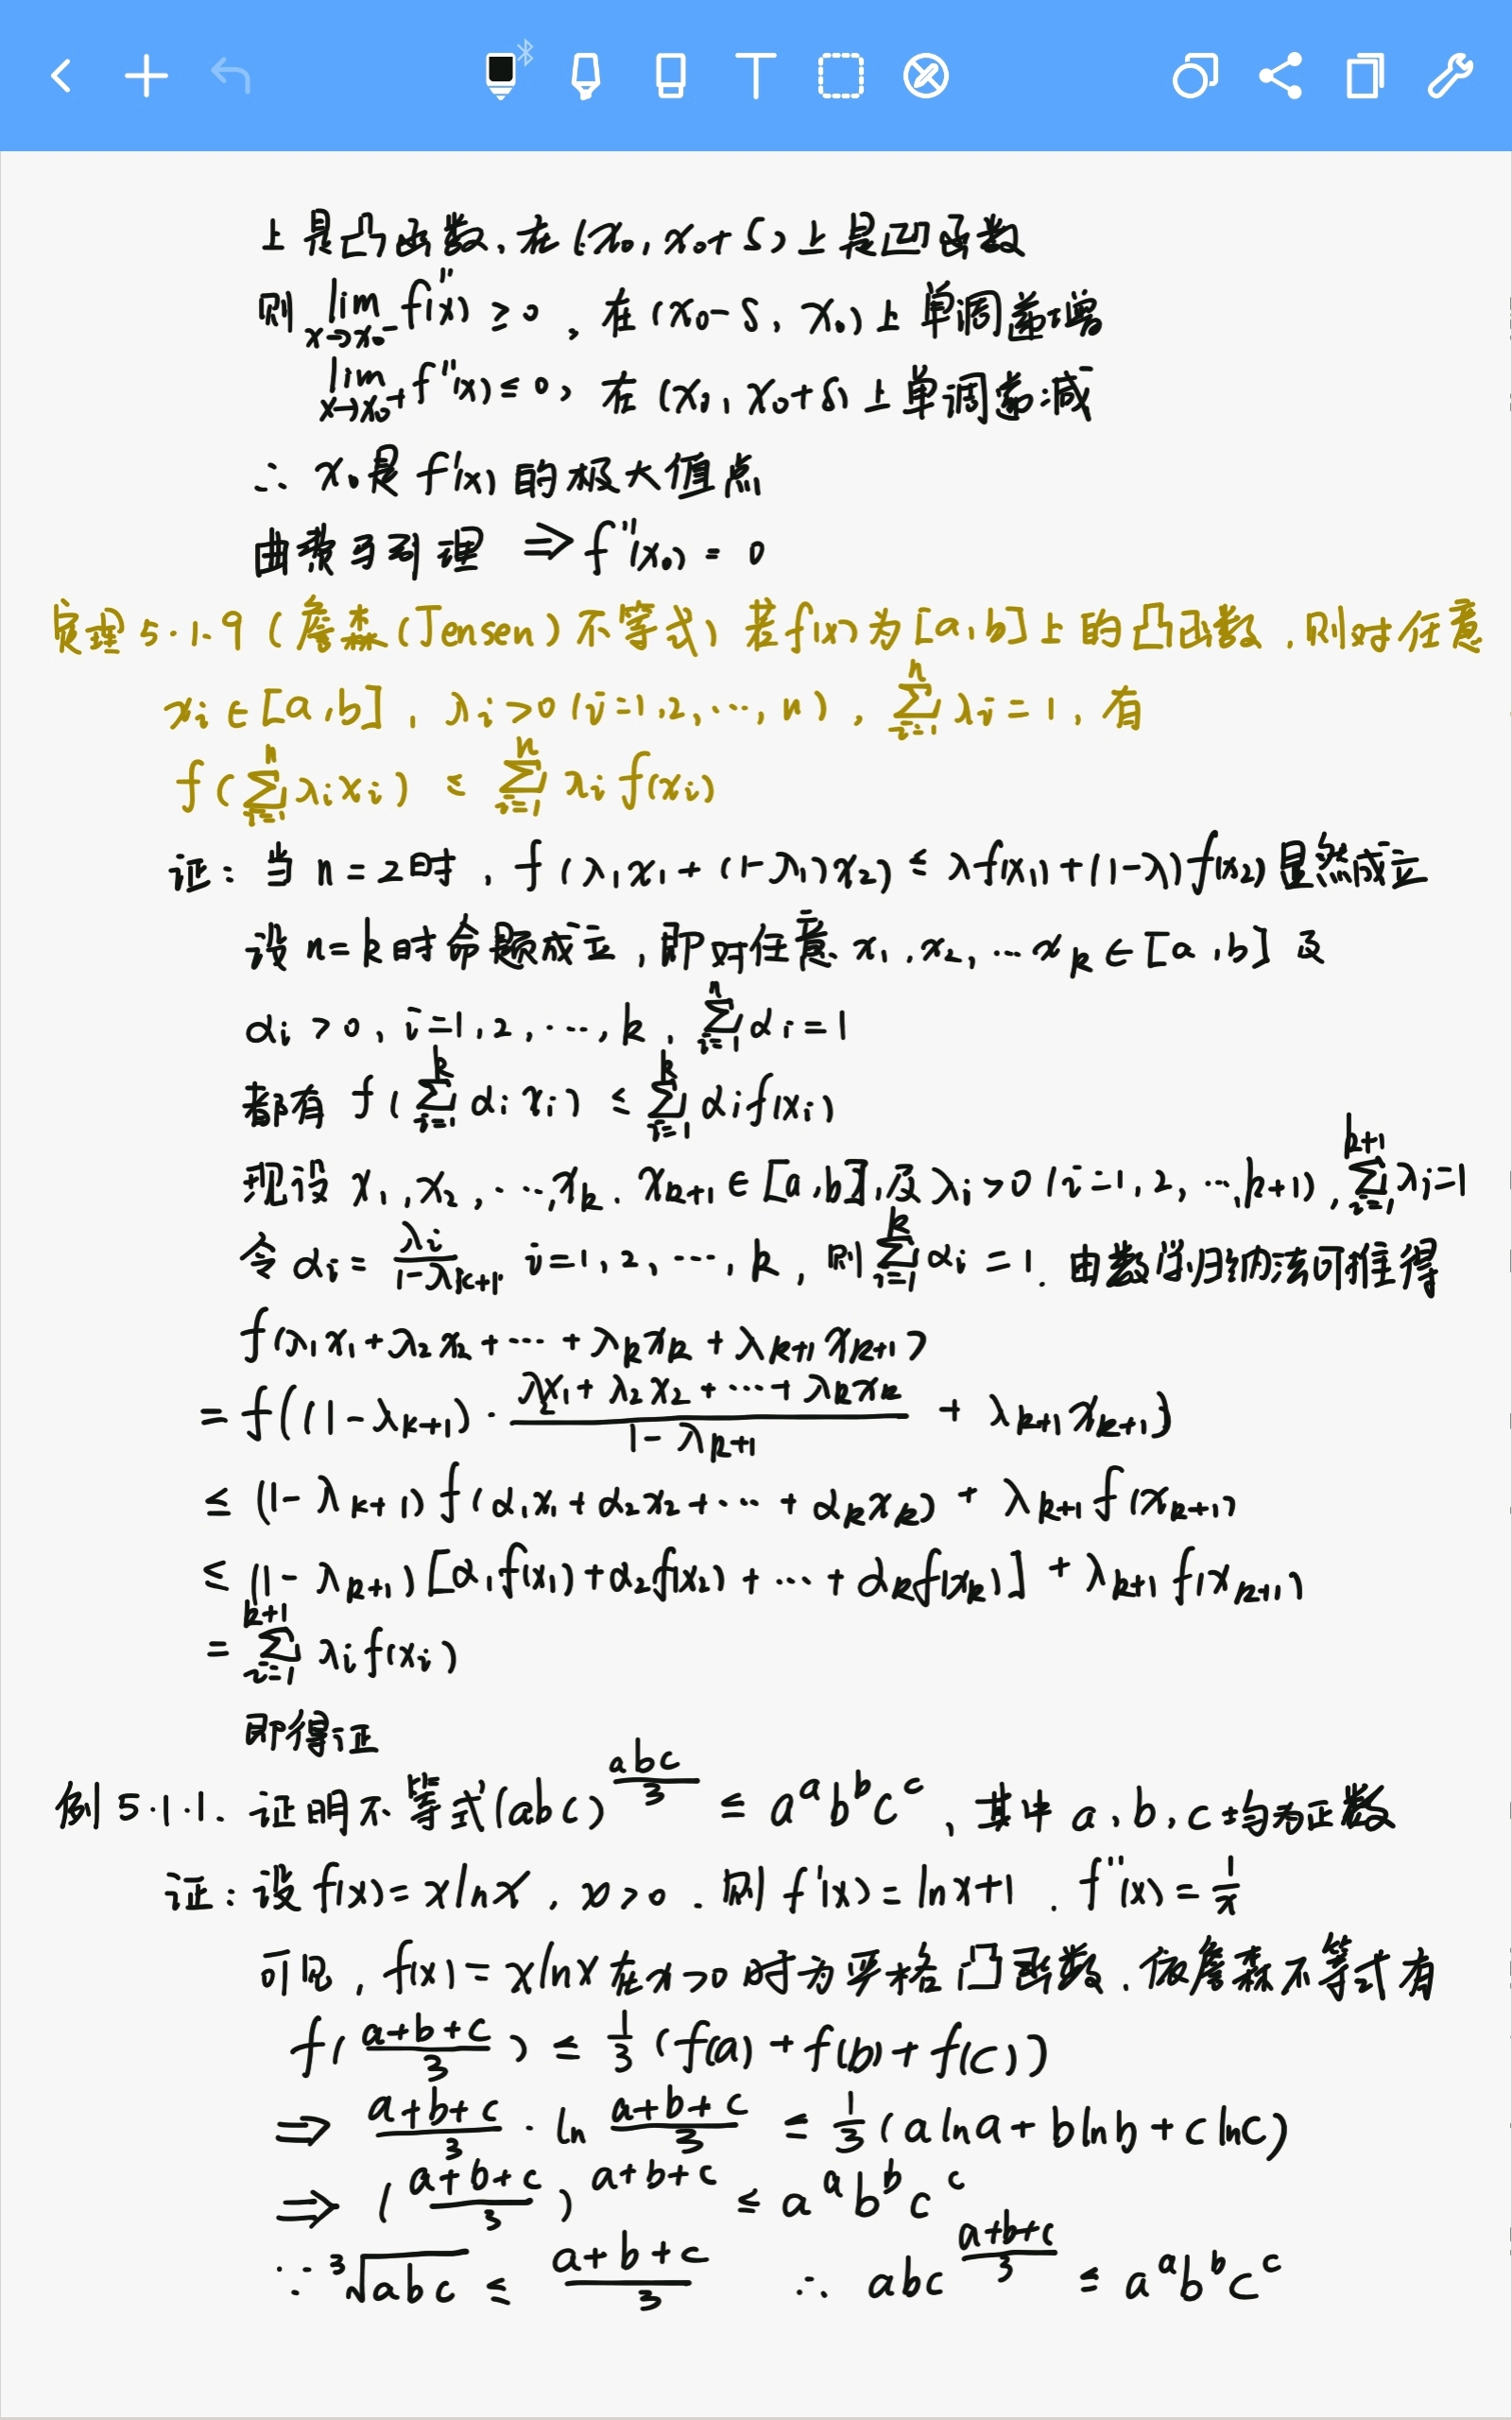 上是凸函数,在(x₀,x₀+δ)上是凹函数
则 lim_{x→x₀⁻} f''(x) ≥ 0 , 在(x₀-δ, x₀)上单调递增
lim_{x→x₀⁺} f''(x) ≤ 0, 在(x₀,x₀+δ)上单调递减
∴ x₀是f'(x)的极大值点
由费马引理 ⇒ f''(x₀) = 0
定理5.1.9(詹森(Jensen)不等式)若f(x)为[a,b]上的凸函数,则对任意
xᵢ∈[a,b], λᵢ>0(i=1,2,…,n), ∑_{i=1}^{n} λᵢ=1,有
f(∑_{i=1}^{n} λᵢxᵢ) ≤ ∑_{i=1}^{n} λᵢf(xᵢ)
证:当n=2时,f(λ₁x₁+(1-λ₁)x₂) ≤ λf(x₁)+(1-λ)f(x₂)显然成立
设n=k时命题成立,即对任意x₁,x₂,…x_k∈[a,b]及
αᵢ>0, i=1,2,…,k, ∑_{i=1}^{n} αᵢ=1
都有 f(∑_{i=1}^{k} αᵢxᵢ) ≤ ∑_{i=1}^{k} αᵢf(xᵢ)
现设x₁,x₂,…,x_k, x_{k+1}∈[a,b],及λᵢ>0(i=1,2,…,k+1), ∑_{i=1}^{k+1} λᵢ=1
令αᵢ = \frac{λᵢ}{1-λ_{k+1}} i=1,2,…,k, 则∑_{i=1}^{k} αᵢ=1. 由数学归纳法可推得
f(λ₁x₁+λ₂x₂+…+λ_kx_k+λ_{k+1}x_{k+1})
= f((1-λ_{k+1})·\frac{λx₁+λ₂x₂+…+λ_kx_k}{1-λ_{k+1}} + λ_{k+1}x_{k+1})
≤ (1-λ_{k+1})f(α₁x₁+α₂x₂+…+α_kx_k) + λ_{k+1}f(x_{k+1})
≤ (1-λ_{k+1})[α₁f(x₁)+α₂f(x₂)+…+α_kf(x_k)] + λ_{k+1}f(x_{k+1})
= ∑_{i=1}^{k+1} λᵢf(xᵢ)
即得证
例5.1.1. 证明不等式(abc)^{\frac{abc}{3}} ≤ a^a b^b c^c, 其中a,b,c均为正数
证:设f(x)=xlnx, x>0. 则f'(x)=lnx+1. f''(x)=\frac{1}{x}
可见,f(x)=xlnx在x>0时为严格凸函数,依詹森不等式有
f(\frac{a+b+c}{3}) ≤ \frac{1}{3}(f(a)+f(b)+f(c))
⇒ \frac{a+b+c}{3}·ln\frac{a+b+c}{3} ≤ \frac{1}{3}(alna+blnb+clnc)
⇒ (\frac{a+b+c}{3})^{a+b+c} ≤ a^a b^b c^c
∵ ³√abc ≤ \frac{a+b+c}{3} ∴ abc^{\frac{a+b+c}{3}} ≤ a^a b^b c^c